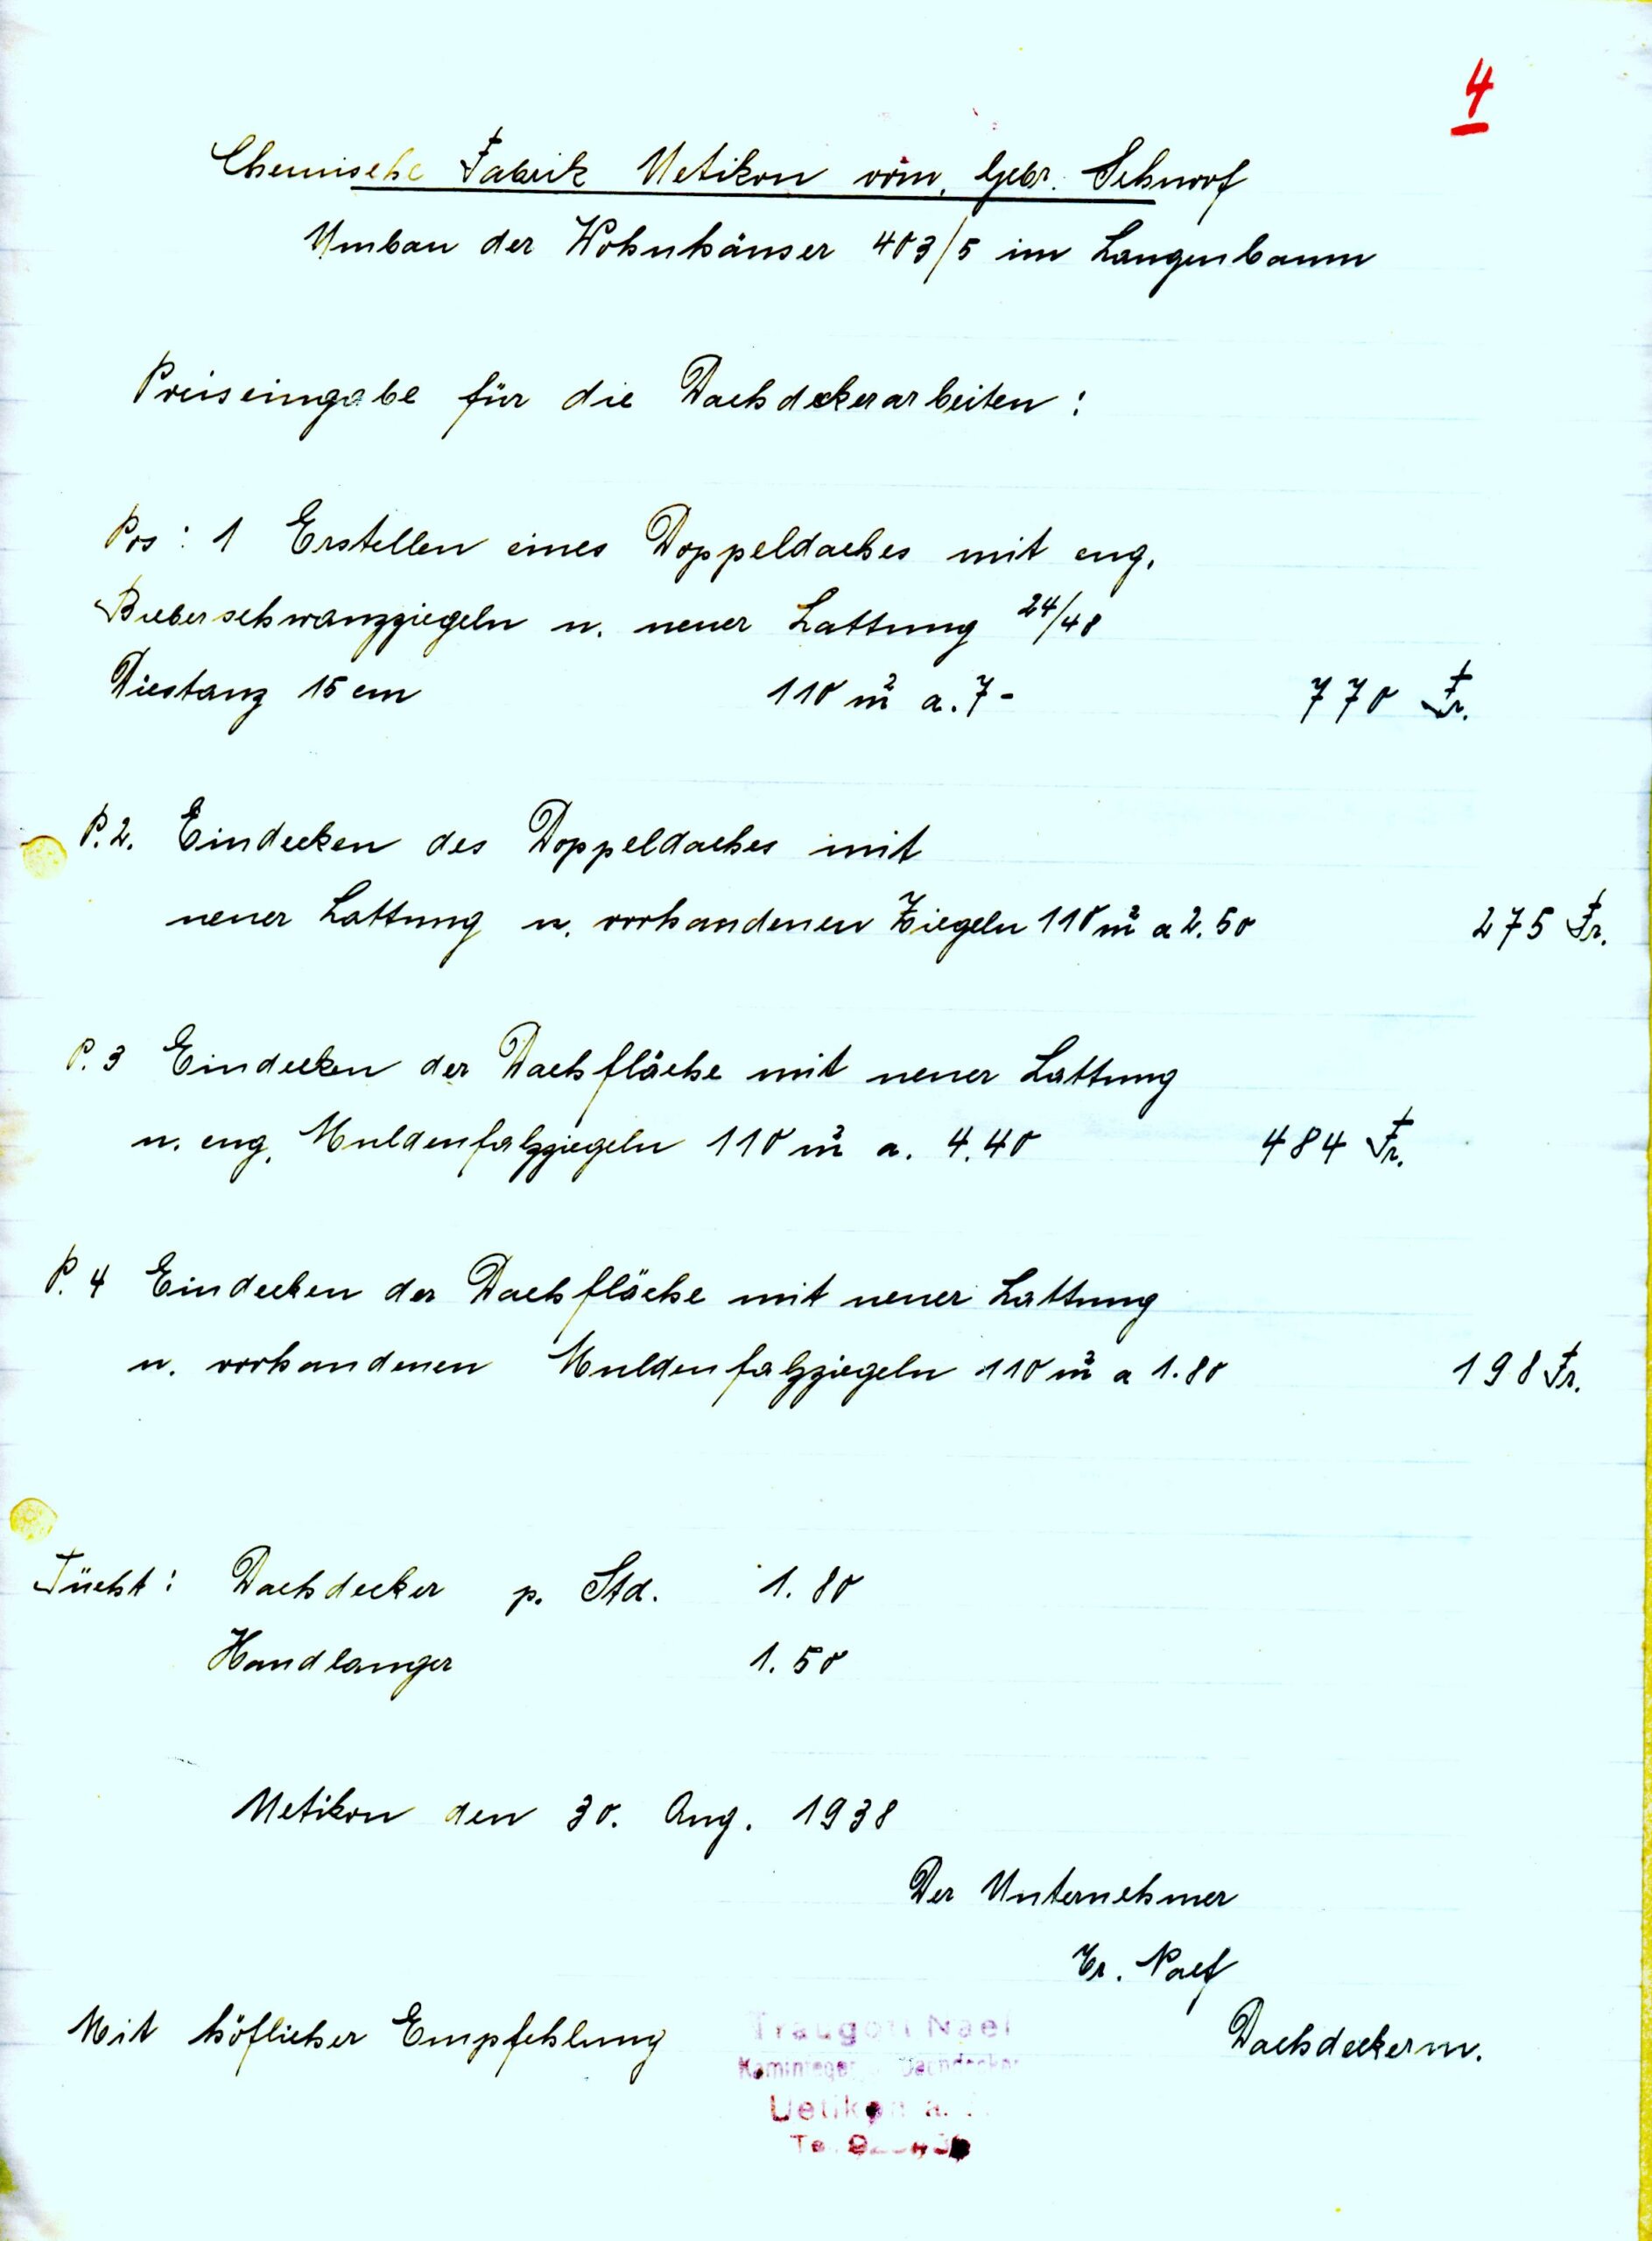 4
Chemische Fabrik Uetikon vorm. Gebr. Schnorf
Umbau der Wohnhäuser 403/5 im Langenbaum
Preiseingabe für die Dachdeckerarbeiten:
Pos: 1 Erstellen eines Doppeldaches mit eng.
Bieberschwanzziegeln u. neuer Lattung 24/48
Diestanz 15 cm 110 m² a. 7- 770 Fr.
P. 2. Eindecken des Doppeldaches mit
neuer Lattung u. vorhandenen Ziegeln 110 m² a 2.50 275 Fr.
P. 3 Eindecken der Dachfläche mit neuer Lattung
u. eng. Muldenfalzziegeln 110 m² a. 4.40 484 Fr.
P. 4 Eindecken der Dachfläche mit neuer Lattung
u. vorhandenen Muldenfalzziegeln 110 m² a 1.80 198 Fr.
Tücht: Dachdecker p. Std. 1.80
Handlanger 1.50
Uetikon den 30. Aug. 1938
Der Unternehmer
Tr. Naef
Mit höflicher Empfehlung Dachdeckerm.
Traugott Naef
Kaminfeger Dachdecker
Uetikon a.